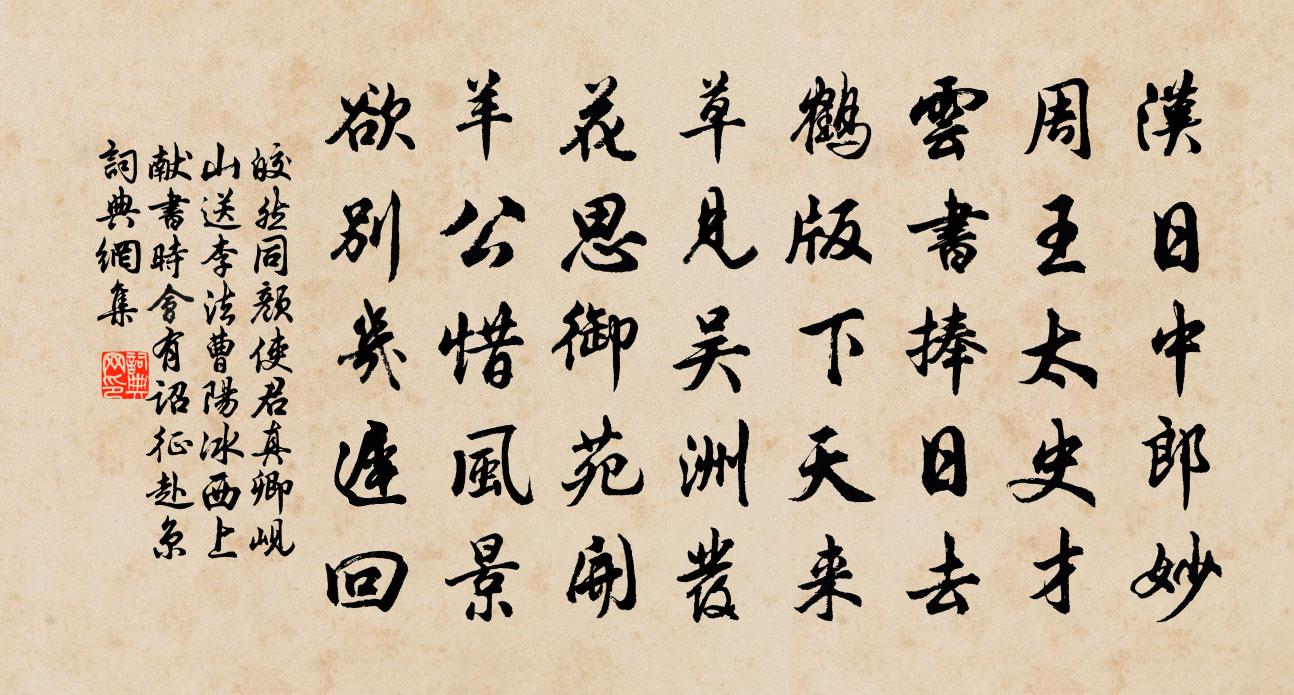 漢日中郎妙
周王太史才
雲書捧日去
鶴版下天来
草見吴洲發
花思御苑開
羊公惜風景
欲別幾遲回
皎然同顏使君真卿峴
山送李法曹陽冰西上
献書時會有詔征赴京
詞典網集
詞典
网印